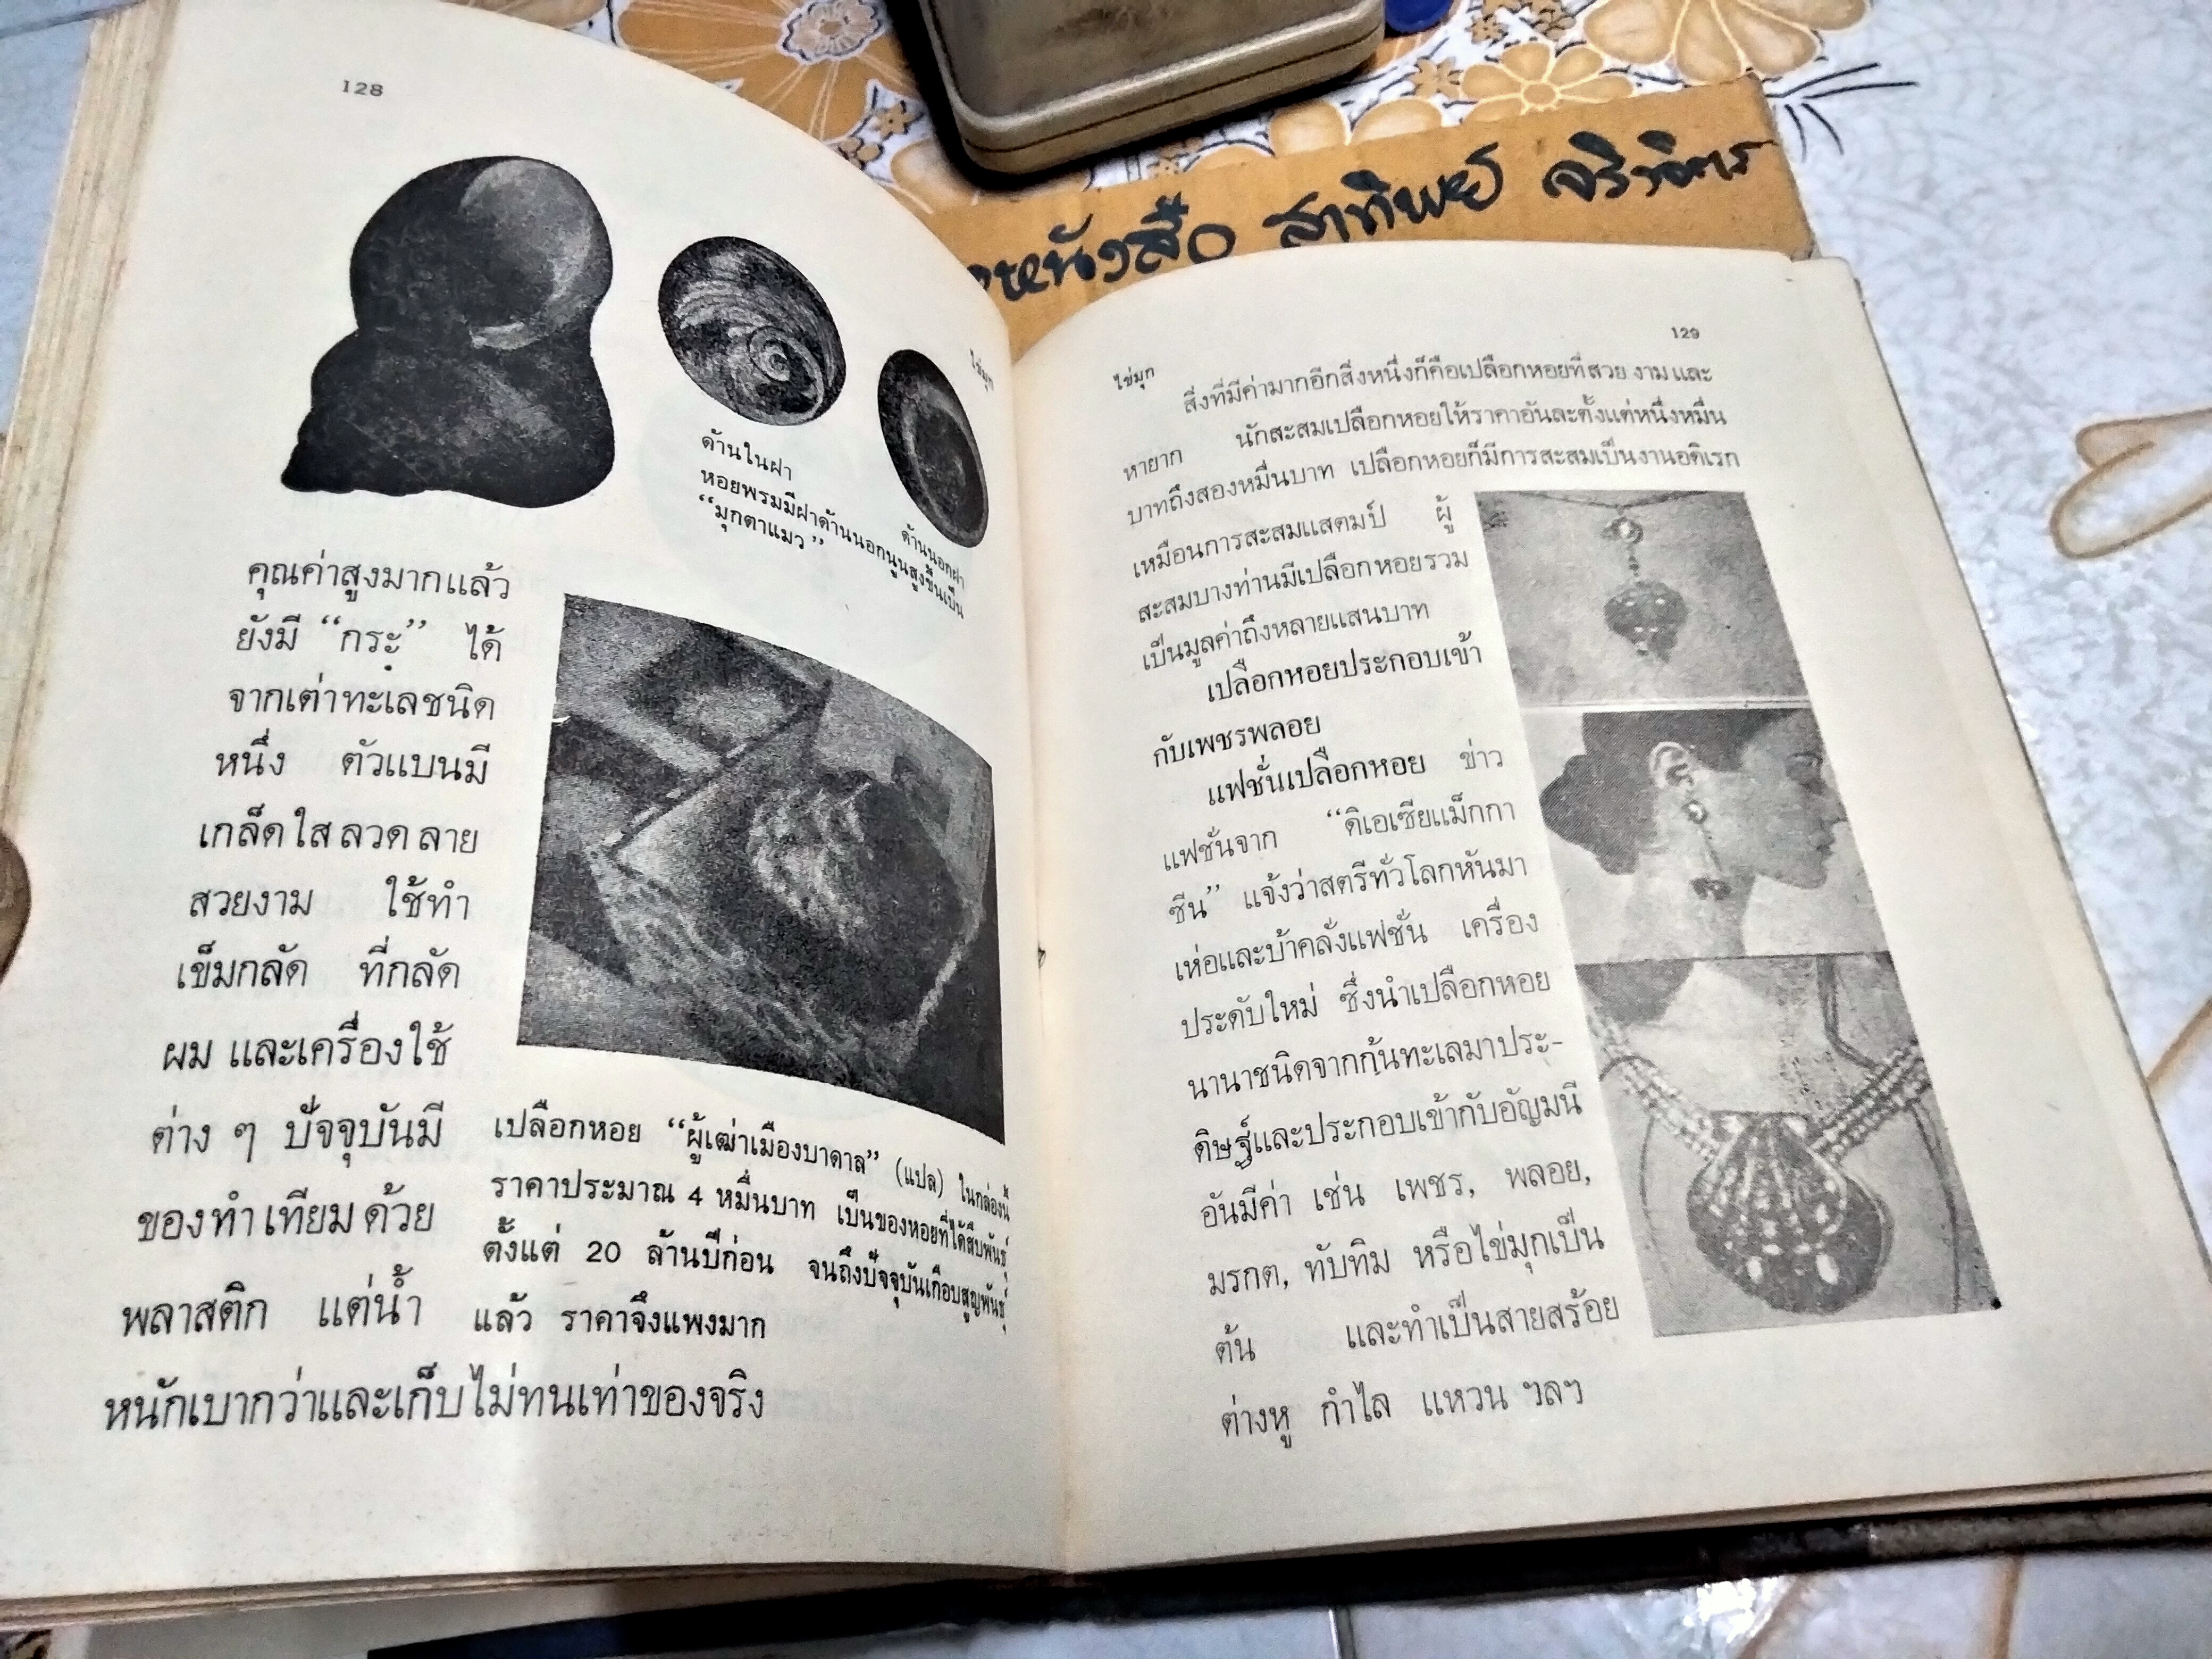 128
ไข่มุก
ด้านในฝา
ด้านนอกฝา
หอยพรมมีฝาด้านนอกนูนสูงขึ้นเป็น
“มุกตาแมว”
คุณค่าสูงมากแล้ว
ยังมี “กระ” ได้
จากเต่าทะเลชนิด
หนึ่ง ตัวแบนมี
เกล็ดใสลวดลาย
สวยงาม ใช้ทำ
เข็มกลัด ที่กลัด
ผม และเครื่องใช้
ต่าง ๆ ปัจจุบันมี
ของทำเทียมด้วย
พลาสติก แต่น้ำ
หนักเบากว่าและเก็บไม่ทนเท่าของจริง
เปลือกหอย “ผู้เฒ่าเมืองบาดาล” (แปล) ในกล่องนี้
ราคาประมาณ 4 หมื่นบาท เป็นของหอยที่ได้สืบพันธุ์
ตั้งแต่ 20 ล้านปีก่อน จนถึงปัจจุบันเกือบสูญพันธุ์
แล้ว ราคาจึงแพงมาก
หนังสือ สาทิพย์
129
ไข่มุก
สิ่งที่มีค่ามากอีกสิ่งหนึ่งก็คือเปลือกหอยที่สวยงามและ
หายาก นักสะสมเปลือกหอยให้ราคาอันละตั้งแต่หนึ่งหมื่น
บาทถึงสองหมื่นบาท เปลือกหอยก็มีการสะสมเป็นงานอดิเรก
เหมือนการสะสมแสตมป์ ผู้
สะสมบางท่านมีเปลือกหอยรวม
เป็นมูลค่าถึงหลายแสนบาท
เปลือกหอยประกอบเข้า
กับเพชรพลอย
แฟชั่นเปลือกหอย ข่าว
แฟชั่นจาก “ดิเอเซียแม็กกา
ซีน” แจ้งว่าสตรีทั่วโลกหันมา
เห่อและบ้าคลั่งแฟชั่น เครื่อง
ประดับใหม่ ซึ่งนำเปลือกหอย
นานาชนิดจากก้นทะเลมาประ-
ดิษฐ์และประกอบเข้ากับอัญมนี
อันมีค่า เช่น เพชร, พลอย,
มรกต, ทับทิม หรือไข่มุกเป็น
ต้น และทำเป็นสายสร้อย
ต่างหู กำไล แหวน ฯลฯ